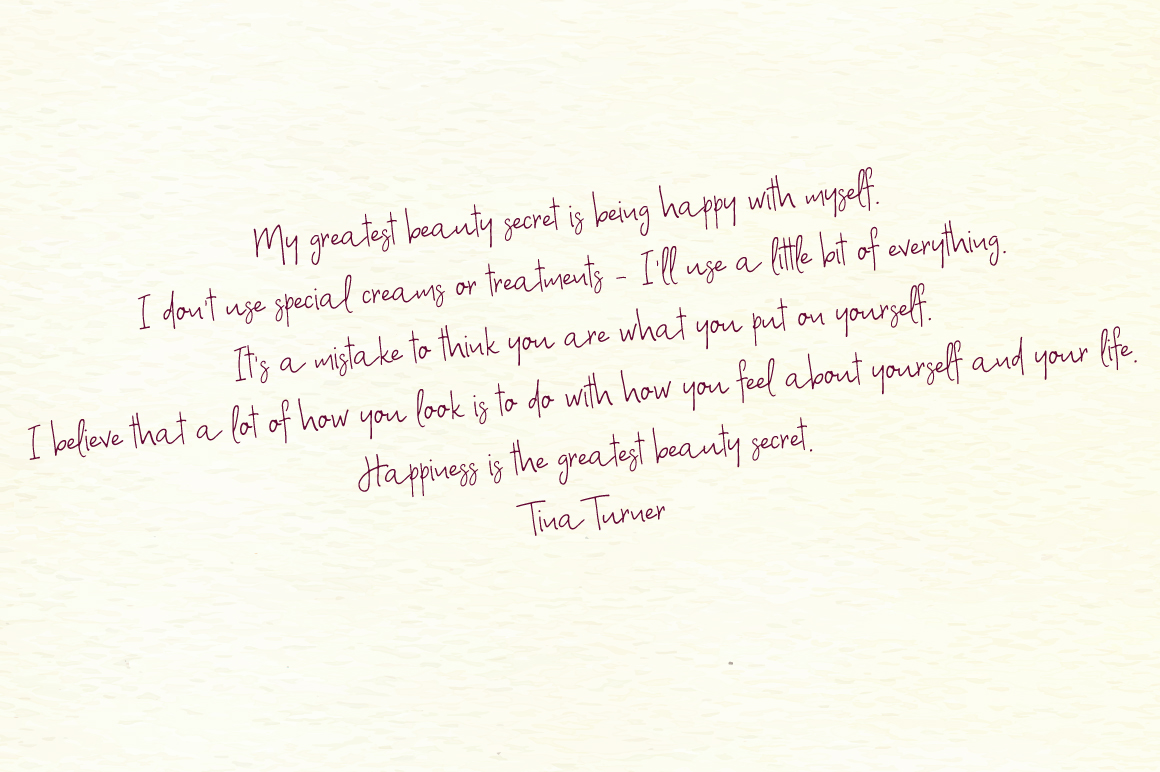 My greatest beauty secret is being happy with myself.
I don't use special creams or treatments - I'll use a little bit of everything.
It's a mistake to think you are what you put on yourself.
I believe that a lot of how you look is to do with how you feel about yourself and your life.
Happiness is the greatest beauty secret.
Tina Turner